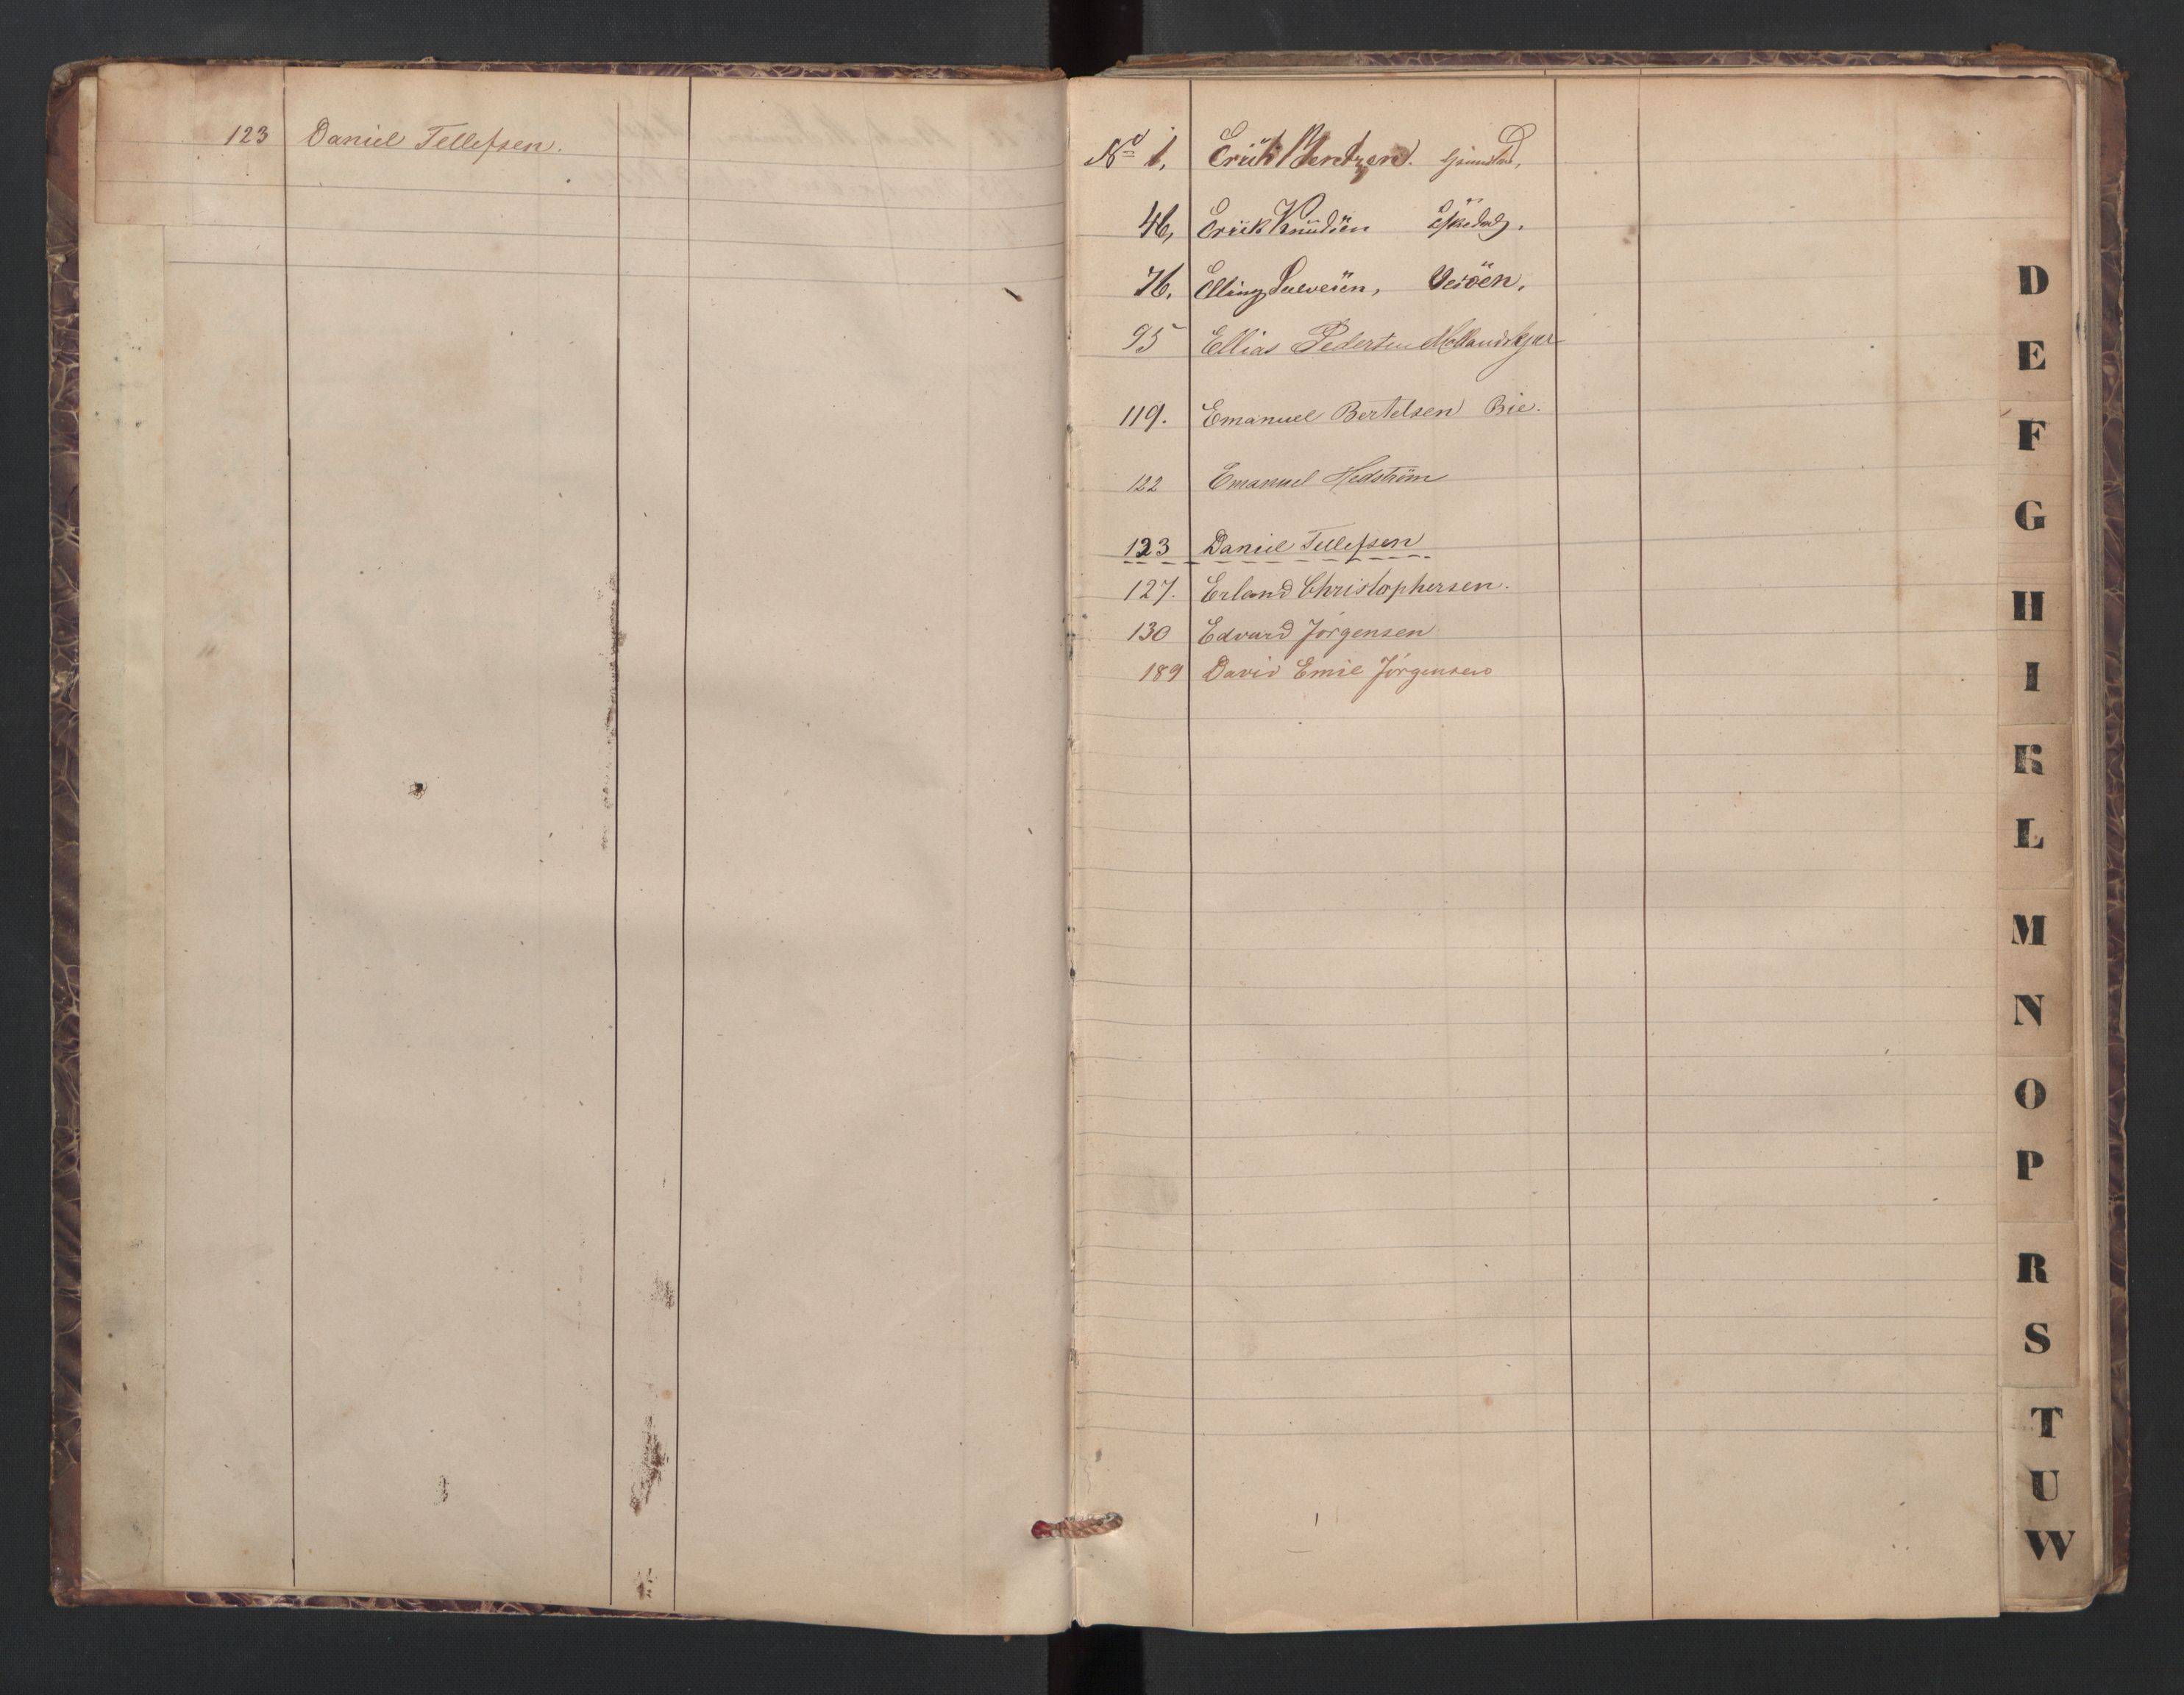 123 Daniel Tellefsen.
No 1, Erick Bentzen. Grimstad,
46, Erick Knudsen
76, Elling Vesöen,
95 Ellias Pedersen
119. Emanuel Bertelsen Bie.
122 Emanuel Hedström
123 Daniel Tellefsen
127. Erland Christophersen.
130 Edvard Jörgensen
189 David Emil Jörgensen
D
E
F
G
H
I
K
L
M
N
O
P
R
S
T
U
W